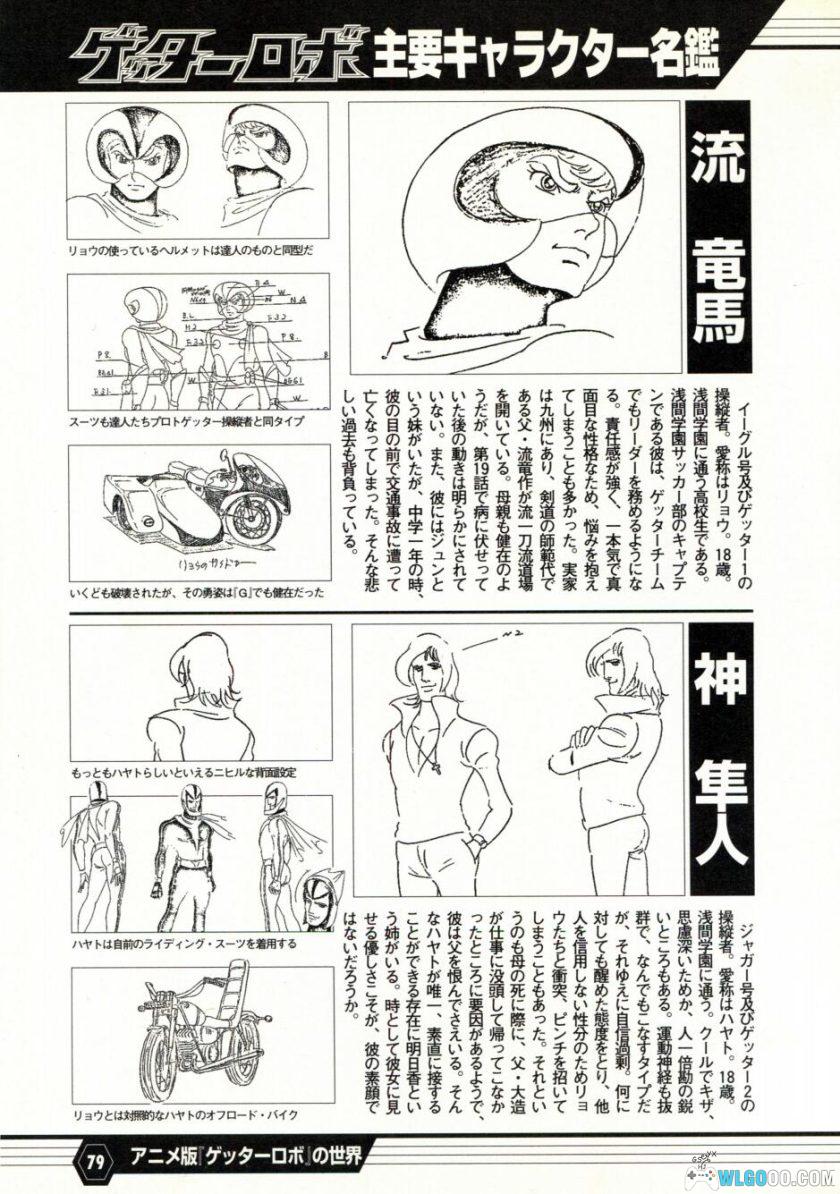 ゲッターロボ主要キャラクター名鑑
流 竜馬
リョウの使っているヘルメットは達人のものと同型だ
スーツも達人たちプロトゲッター操縦者と同タイプ
いくども破壊されたが、その勇姿は『G』でも健在だった
イーグル号及びゲッター1の
操縦者。愛称はリョウ。18歳。
浅間学園に通う高校生である。
浅間学園サッカー部のキャプテ
ンである彼は、ゲッターチーム
でもリーダーを務めるようにな
る。責任感が強く、一本気で真
面目な性格なため、悩みを抱え
てしまうことも多かった。実家
は九州にあり、剣道の師範代で
ある父・流竜作が流一刀流道場
を開いている。母親も健在のよ
うだが、第19話で病に伏せって
いた後の動きは明らかにされて
いない。また、彼にはジュンと
いう妹がいたが、中学一年の時、
彼の目の前で交通事故に遭って
亡くなってしまった。そんな悲
しい過去も背負っている。
神 隼人
N2
もっともハヤトらしいといえるニヒルな背面設定
ハヤトは自前のライディング・スーツを着用する
リョウとは対照的なハヤトのオフロード・バイク
ジャガー号及びゲッター2の
操縦者。愛称はハヤト。18歳。
浅間学園に通う。クールでキザ、
思慮深いためか、人一倍勘の鋭
いところもある。運動神経も抜
群で、なんでもこなすタイプだ
が、それゆえに自信過剰。何に
対しても醒めた態度をとり、他
人を信用しない性分のためリョ
ウたちと衝突、ピンチを招いて
しまうこともあった。それとい
うのも母の死に際に、父・大造
が仕事に没頭して帰ってこなか
ったところに要因があるようで、
彼は父を恨んでさえいる。そん
なハヤトが唯一、素直に接する
ことができる存在に明日香とい
う姉がいる。時として彼女に見
せる優しさこそが、彼の素顔で
はないだろうか。
79 アニメ版『ゲッターロボ』の世界
WLGOOO.COM